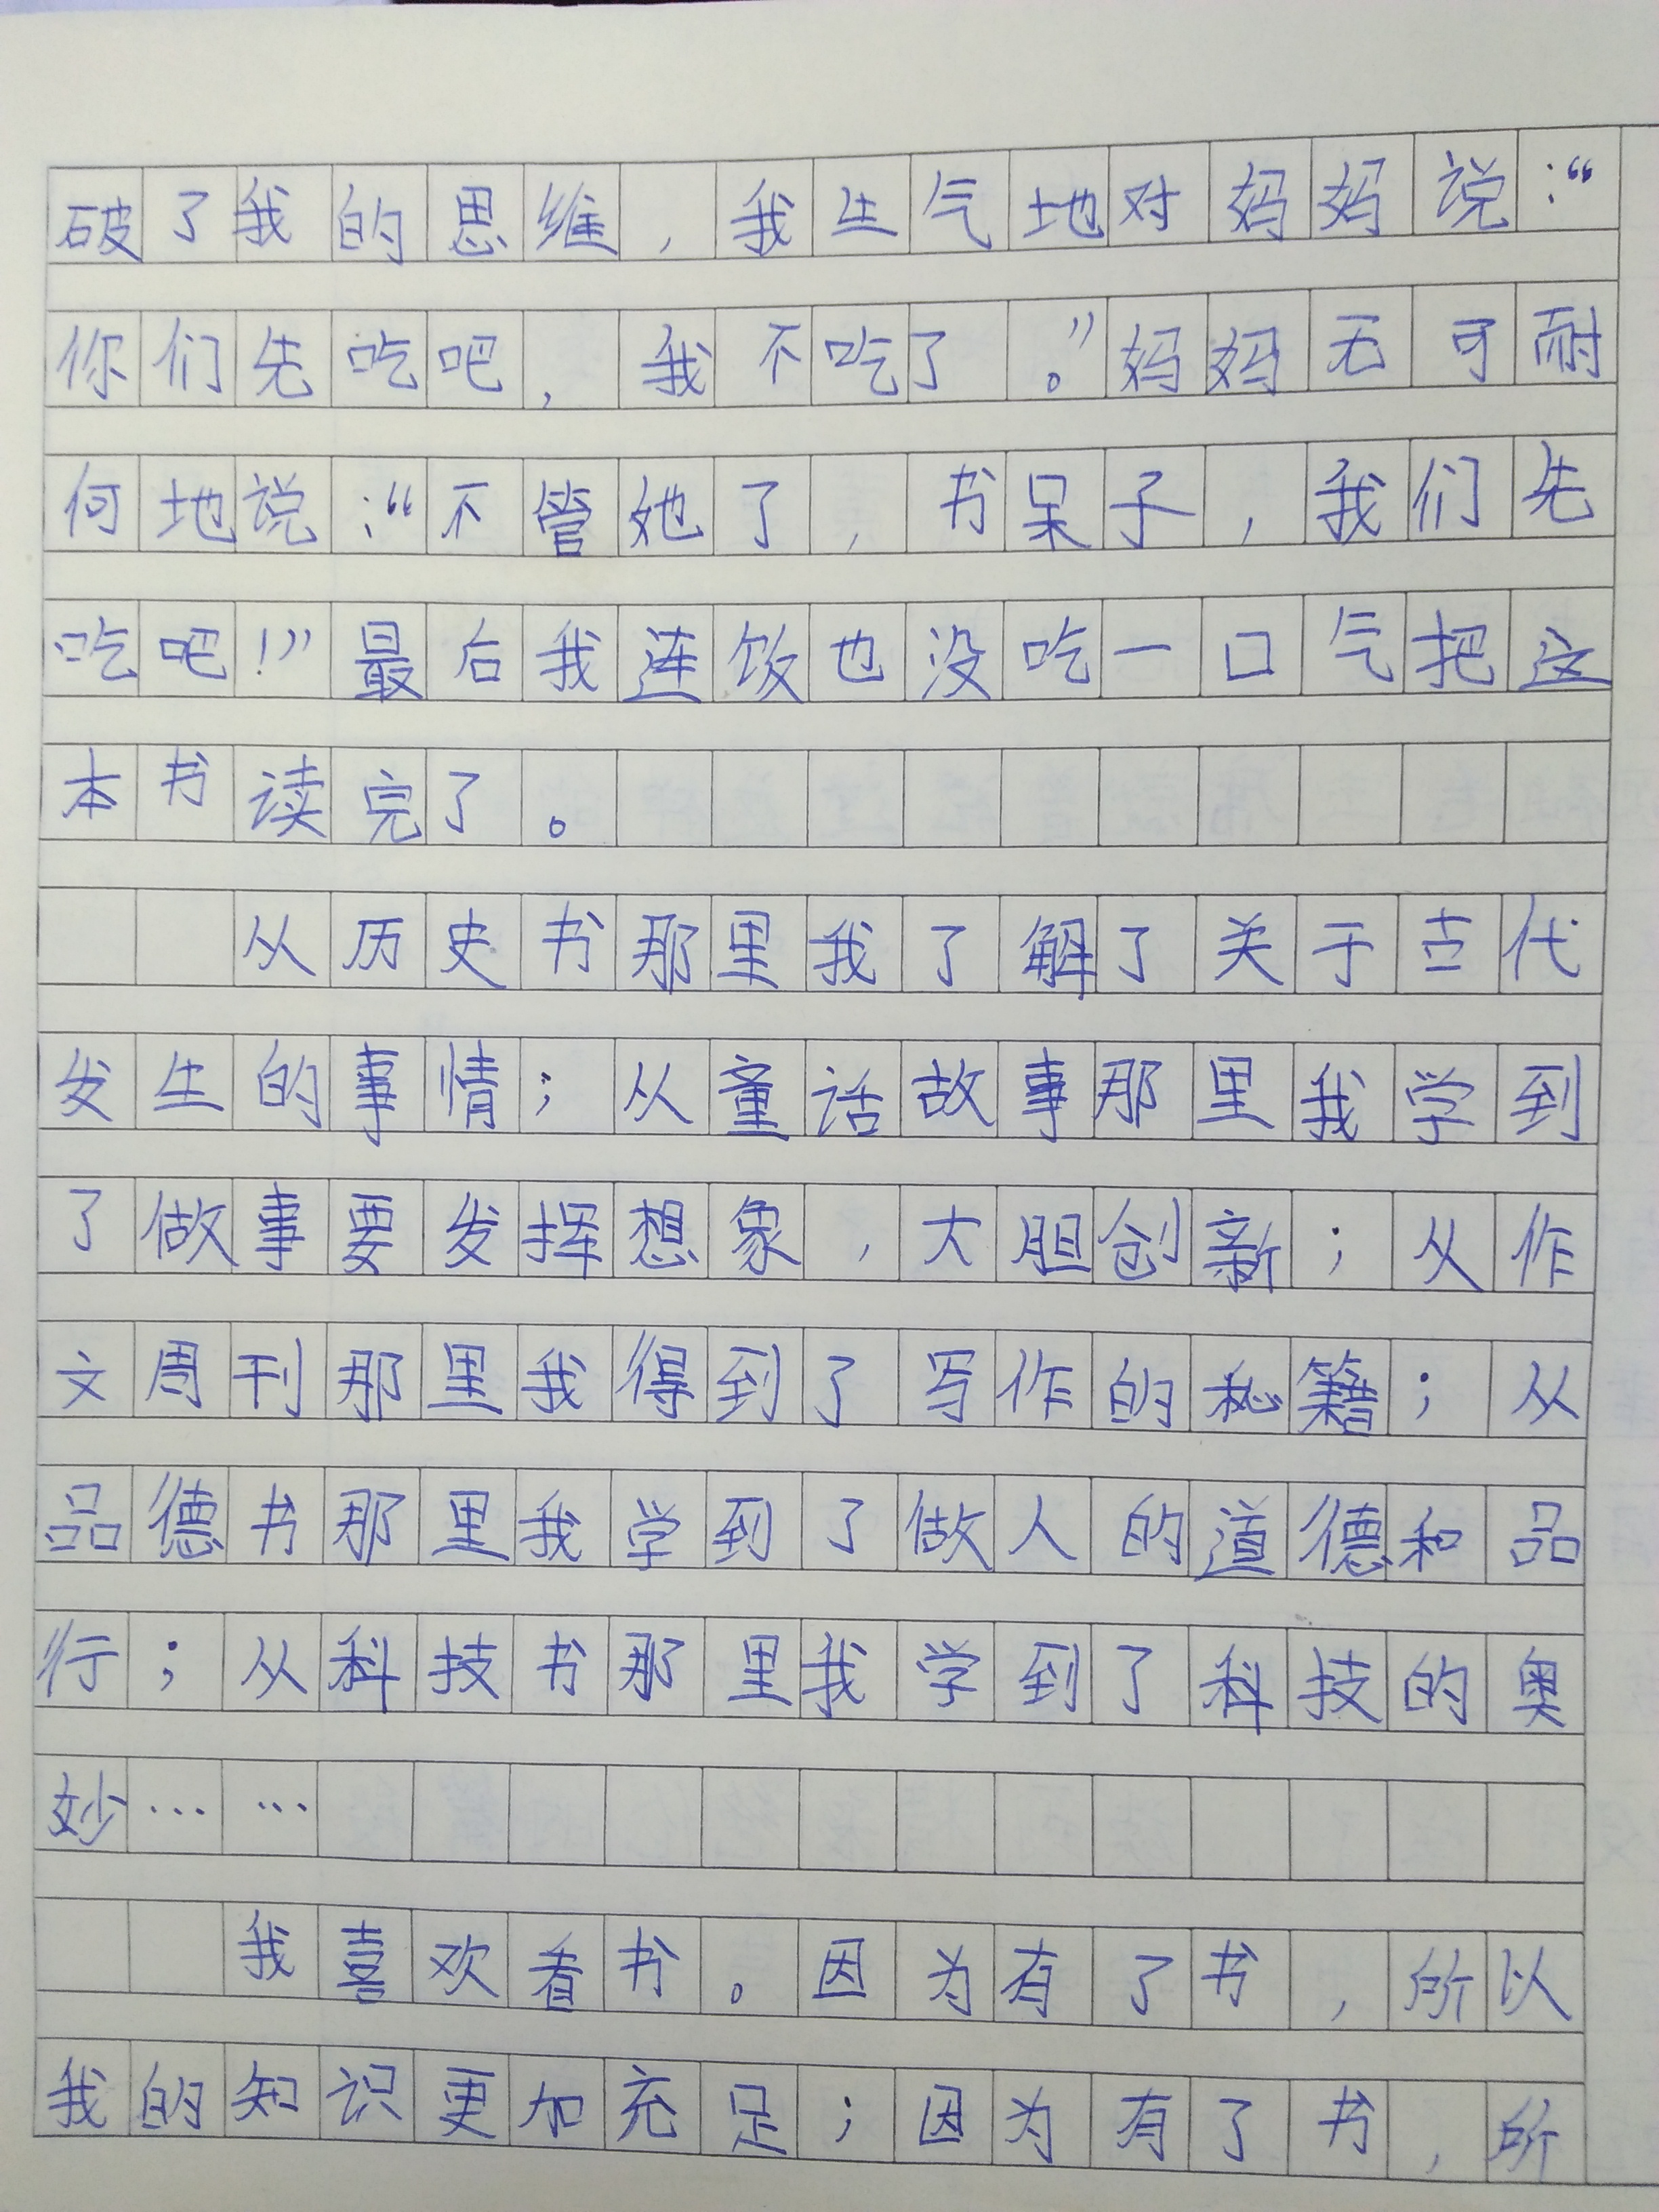 破了我的思维，我生气地对妈妈说：“
你们先吃吧，我不吃了。”妈妈无可耐
何地说：“不管她了，书呆子，我们先
吃吧！”最后我连饭也没吃一口气把这
本书读完了。
从历史书那里我了解了关于古代
发生的事情；从童话故事那里我学到
了做事要发挥想象，大胆创新；从作
文周刊那里我得到了写作的秘籍；从
品德书那里我学到了做人的道德和品
行；从科技书那里我学到了科技的奥
妙……
我喜欢看书。因为有了书，所以
我的知识更加充足；因为有了书，所